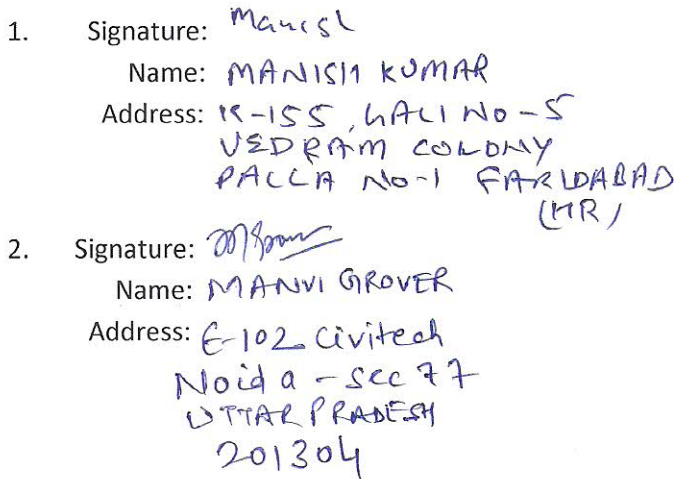 1. Signature: Manish
Name: MANISH KUMAR
Address: K-155, GALI NO-5
VEDRAM COLONY
PALLA NO-1 FARIDABAD
(HR)
2. Signature:
Name: MANVI GROVER
Address: E-102 Civitech
Noida - Sec 77
UTTAR PRADESH
201304